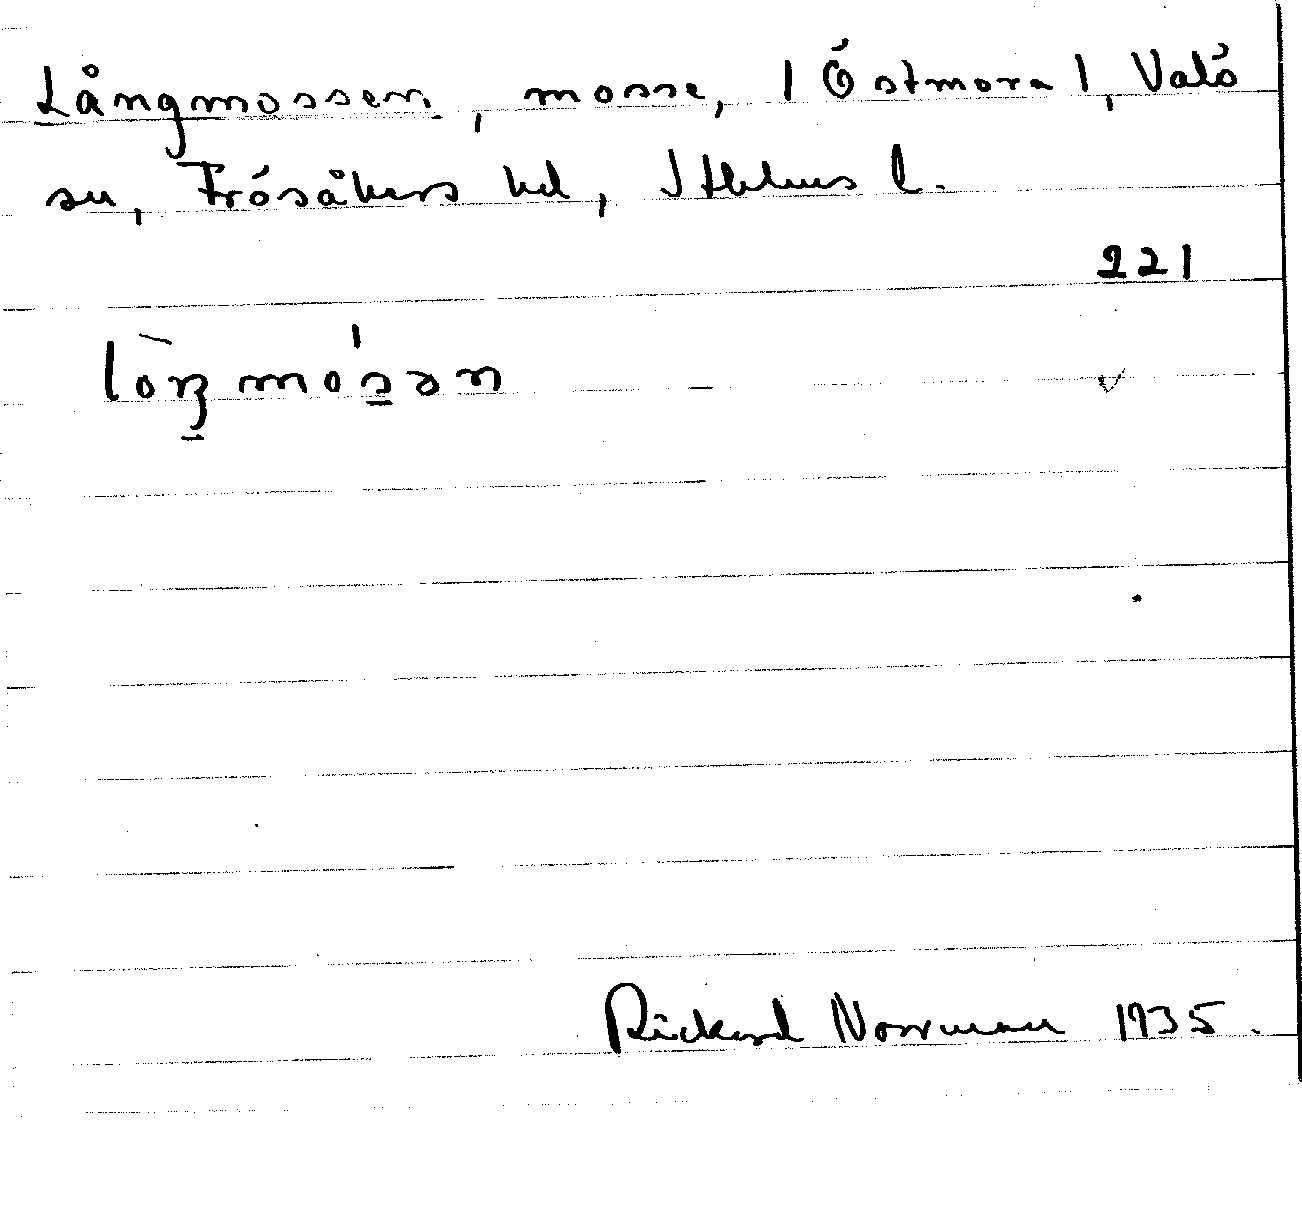 Långmossen, mosse, | Östmora |, Valö
sn, Frösåkers hd, Sthlms l.
221
lòŋmósən
Rickard Norrman 1935.